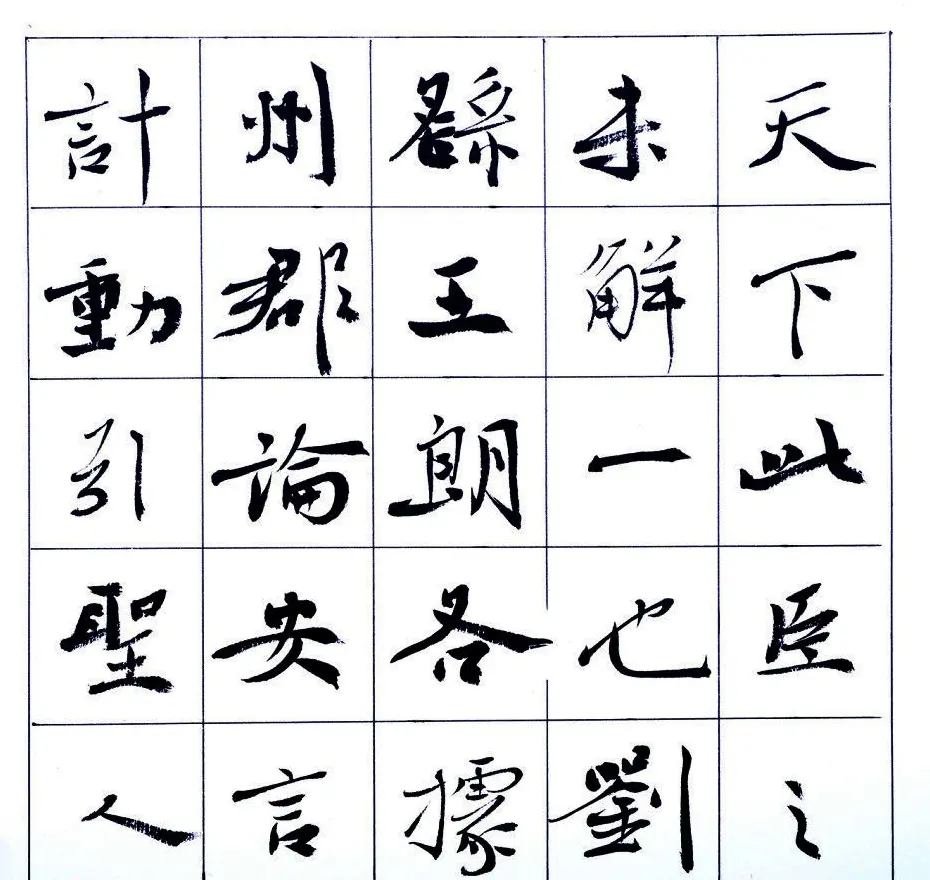 天下此臣之
未解一也劉
繇王朗各據
州郡論安言
計動引聖人